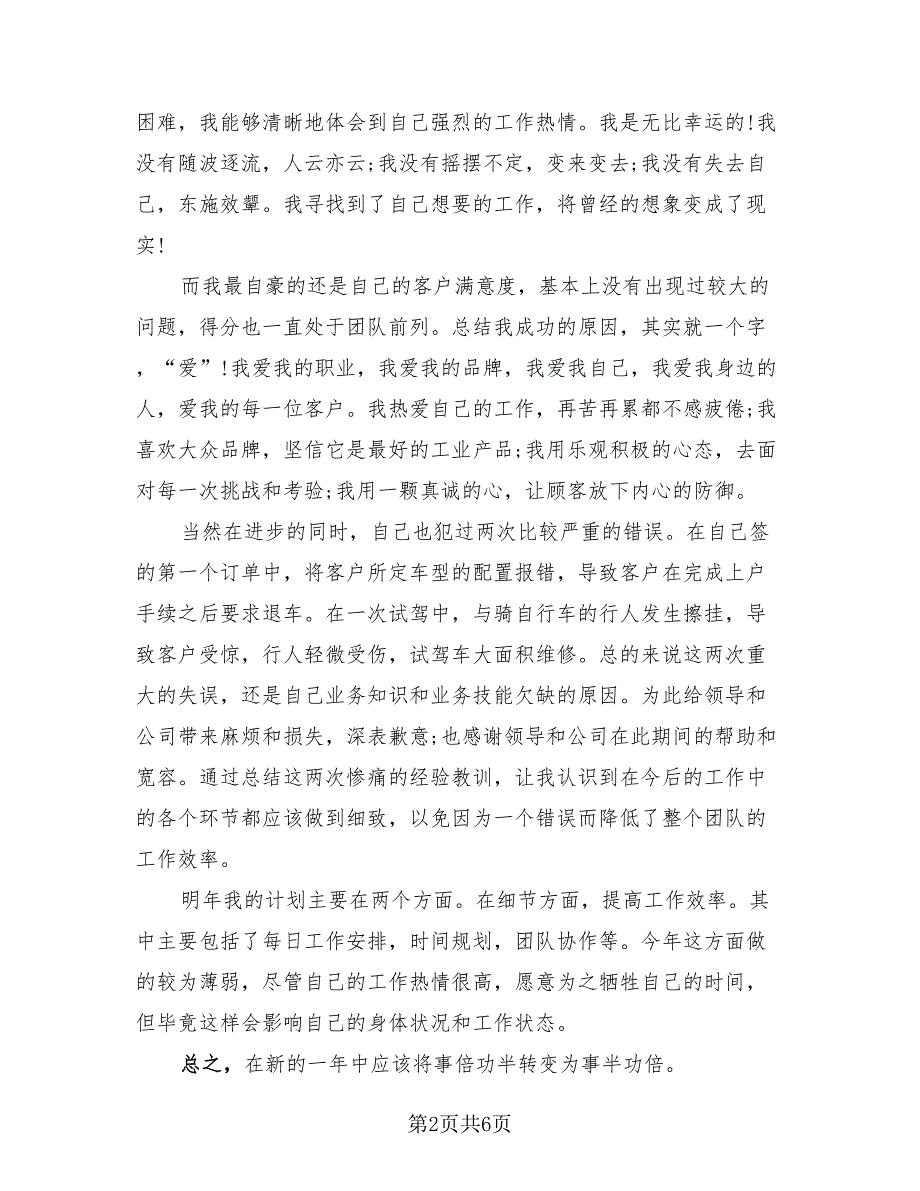 困难，我能够清晰地体会到自己强烈的工作热情。我是无比幸运的!我
没有随波逐流，人云亦云;我没有摇摆不定，变来变去;我没有失去自
己，东施效颦。我寻找到了自己想要的工作，将曾经的想象变成了现
实!
而我最自豪的还是自己的客户满意度，基本上没有出现过较大的
问题，得分也一直处于团队前列。总结我成功的原因，其实就一个字
，“爱”!我爱我的职业，我爱我的品牌，我爱我自己，我爱我身边的
人，爱我的每一位客户。我热爱自己的工作，再苦再累都不感疲倦;我
喜欢大众品牌，坚信它是最好的工业产品;我用乐观积极的心态，去面
对每一次挑战和考验;我用一颗真诚的心，让顾客放下内心的防御。
当然在进步的同时，自己也犯过两次比较严重的错误。在自己签
的第一个订单中，将客户所定车型的配置报错，导致客户在完成上户
手续之后要求退车。在一次试驾中，与骑自行车的行人发生擦挂，导
致客户受惊，行人轻微受伤，试驾车大面积维修。总的来说这两次重
大的失误，还是自己业务知识和业务技能欠缺的原因。为此给领导和
公司带来麻烦和损失，深表歉意;也感谢领导和公司在此期间的帮助和
宽容。通过总结这两次惨痛的经验教训，让我认识到在今后的工作中
的各个环节都应该做到细致，以免因为一个错误而降低了整个团队的
工作效率。
明年我的计划主要在两个方面。在细节方面，提高工作效率。其
中主要包括了每日工作安排，时间规划，团队协作等。今年这方面做
的较为薄弱，尽管自己的工作热情很高，愿意为之牺牲自己的时间，
但毕竟这样会影响自己的身体状况和工作状态。
总之，在新的一年中应该将事倍功半转变为事半功倍。
第2页共6页